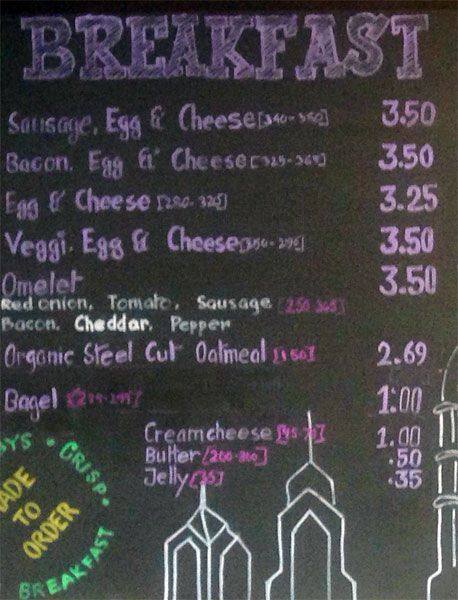 BREAKFAST
Sausage, Egg & Cheese [340-350] 3.50
Bacon, Egg & Cheese [325-365] 3.50
Egg & Cheese [280-325] 3.25
Veggi, Egg & Cheese 3.50
Omelet 3.50
Red onion, Tomato, Sausage [250-365]
Bacon, Cheddar, Pepper
Organic Steel Cut Oatmeal [150] 2.69
Bagel 1.00
Creamcheese 1.00
Butter [200-300] .50
Jelly [35] .35
MADE TO ORDER
YS • CRISP •
BREAKFAST